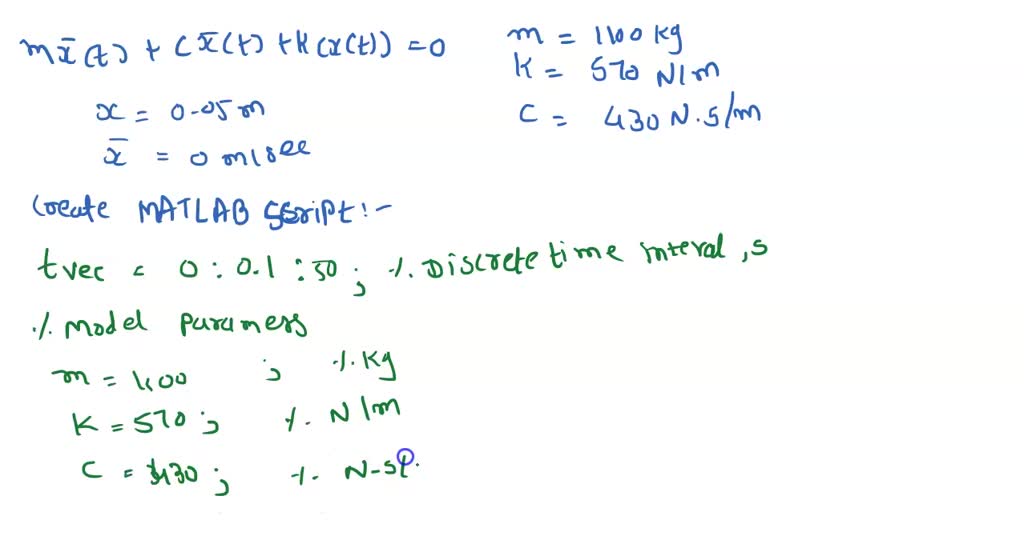 mx̄(t) + Cx̄(t) + K(x(t)) = 0
m = 1100 kg
K = 570 N/m
C = 430 N.S/m
x = 0.05 m
x̄ = 0 m/sec
Create MATLAB Script :-
tvec = 0 : 0.1 : 50 ; % Discrete time interval, s
% Model paramess
m = 1100 ; % Kg
K = 570 ; % N/m
C = 430 ; % N-s/